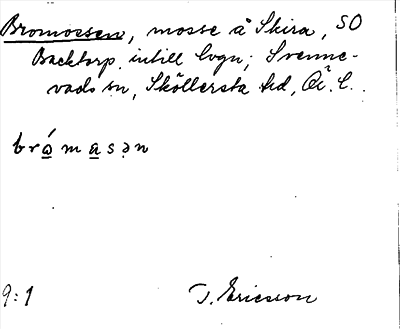 Bromossen, mosse å Skira, SO
Backtorp, intill lvgn; Svenne-
vads sn, Sköllersta hd, Ör. l.
brώmasən
9:1
J. Ericsson